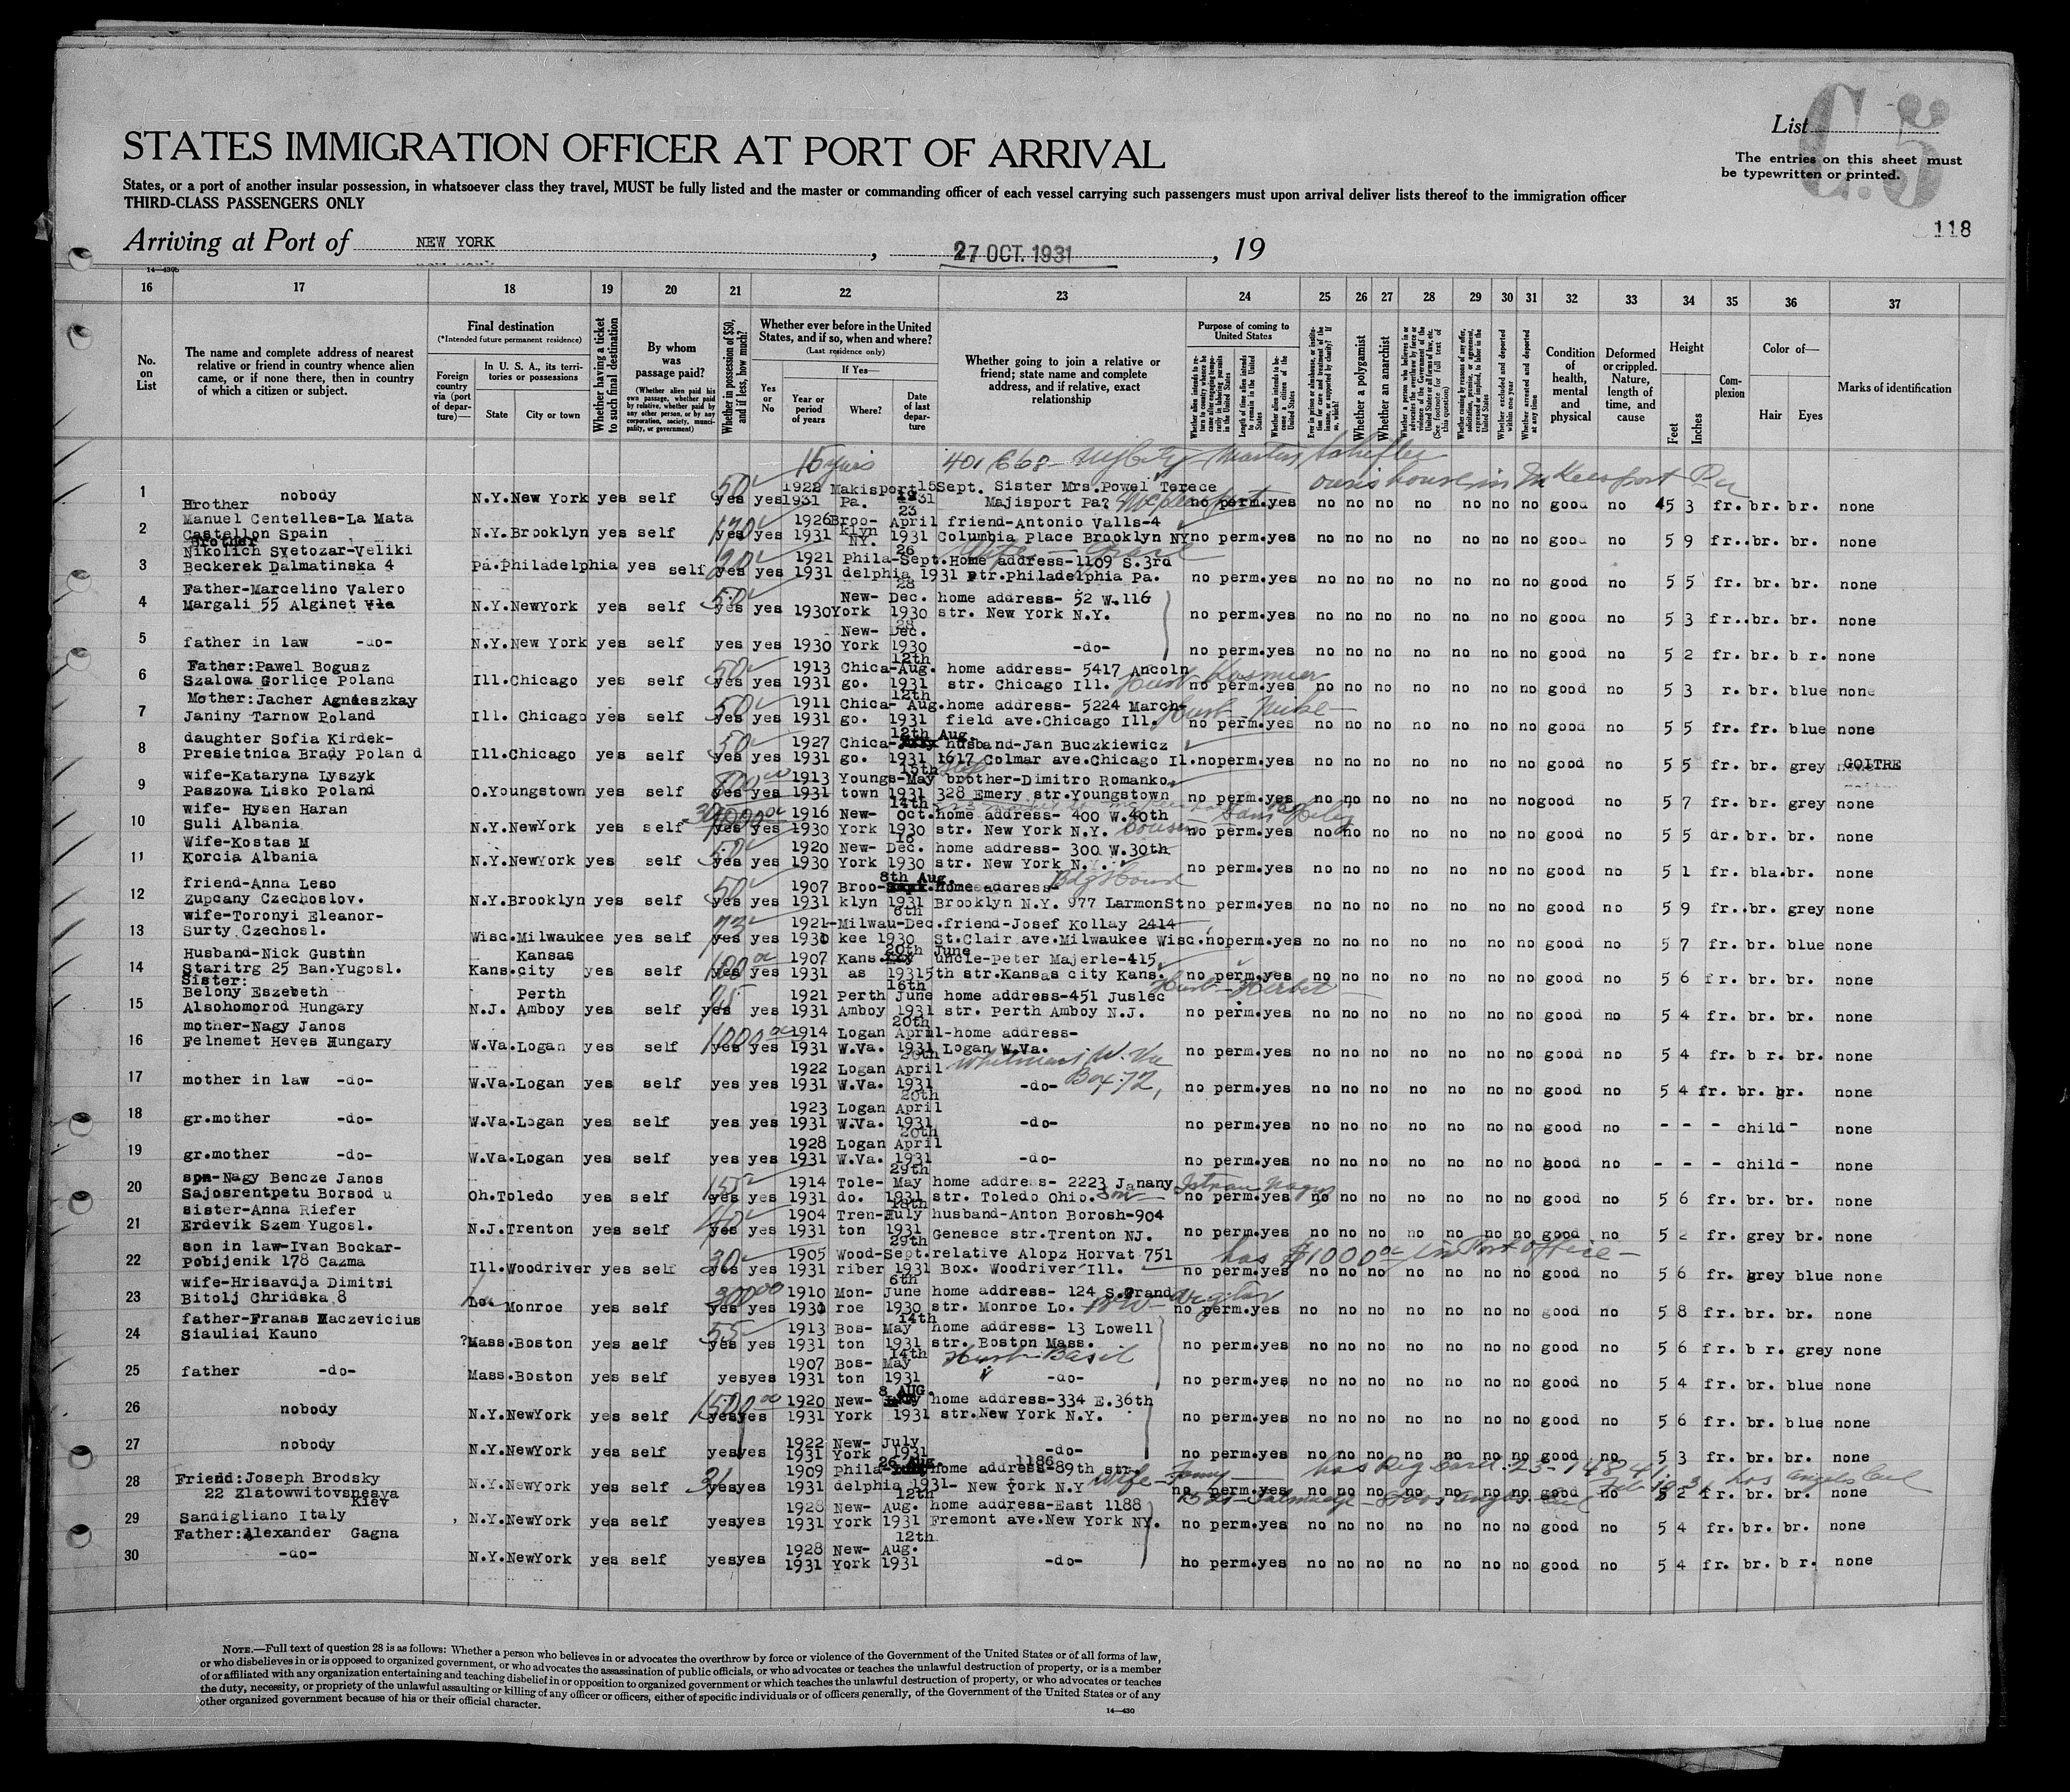 List
C.5
The entries on this sheet must
be typewritten or printed.
STATES IMMIGRATION OFFICER AT PORT OF ARRIVAL
States, or a port of another insular possession, in whatsoever class they travel, MUST be fully listed and the master or commanding officer of each vessel carrying such passengers must upon arrival deliver lists thereof to the immigration officer
THIRD-CLASS PASSENGERS ONLY
118
Arriving at Port of NEW YORK, 27 OCT. 1931, 19
14—430b
16 17 18 19 20 21 22 23 24 25 26 27 28 29 30 31 32 33 34 35 36 37
No. on List
The name and complete address of nearest relative or friend in country whence alien came, or if none there, then in country of which a citizen or subject.
Final destination
(*Intended future permanent residence)
Foreign country via (port of departure)—
In U. S. A., its territories or possessions
State
City or town
Whether having a ticket to such final destination
By whom was passage paid?
(Whether alien paid his own passage, whether paid by relative, whether paid by any other person, or by any corporation, society, municipality, or government)
Whether in possession of $50, and if less, how much?
Whether ever before in the United States, and if so, when and where?
(Last residence only)
Yes or No
If Yes—
Year or period of years
Where?
Date of last departure
Whether going to join a relative or friend; state name and complete address, and if relative, exact relationship
Purpose of coming to United States
Length of time alien intends to remain in the United States
Whether alien intends to become a citizen of the United States
Whether a polygamist
Whether an anarchist
Whether excluded and deported within one year
Whether arrested and deported at any time
Condition of health, mental and physical
Deformed or crippled. Nature, length of time, and cause
Height
Feet
Inches
Complexion
Color of—
Hair
Eyes
Marks of identification
15 years
1 nobody N.Y. New York yes self 50 yes yes 1922 1931 Makisport Pa. 15 Sept. 1931 Sister Mrs. Powel Terece Majisport Pa? no perm. yes no no no no no no no good no 5 3 fr. br. br. none
2 Brother Manuel Centelles-La Mata Castellon Spain N.Y. Brooklyn yes self 170 yes yes 1926 1931 Brooklyn NY. 23 April 1931 friend-Antonio Valls-4 Columbia Place Brooklyn NY no perm. yes no no no no no no no good no 5 9 fr.. br. br. none
3 Brother Nikolich Svetozar-Veliki Beckerek Dalmatinska 4 Pa. Philadelphia yes self yes yes 1921 1931 Philadelphia 26 Sept. 1931 Home address-1109 S.3rd str. Philadelphia Pa. no perm. yes no no no no no no no good no 5 5 fr. br. br. none
4 Father-Marcelino Valero Margali 55 Alginet N.Y. NewYork yes self 50 yes yes 1930 New-York 28 Dec. 1930 home address- 52 W. 116 str. New York N.Y. no perm. yes no no no no no no no good no 5 3 fr.. br. br. none
5 father in law -do- N.Y. New York yes self yes yes 1930 New-York 28 Dec. 1930 -do- no perm. yes no no no no no no no good no 5 2 fr. br. b r. none
6 Father: Pawel Bogusz Szalowa Gorlice Poland Ill. Chicago yes self 50 yes yes 1913 1931 Chicago. 12th Aug. 1931 home address- 5417 Ancoln str. Chicago Ill. no perm. yes no no no no no no no good no 5 3 r. br. blue none
7 Mother: Jacher Agnieszkay Janiny Tarnow Poland Ill. Chicago yes self 50 yes yes 1911 1931 Chicago. 12th Aug. 1931 home address- 5224 Marchfield ave. Chicago Ill. Husb-Mike no perm. yes no no no no no no no good no 5 5 fr. fr. blue none
8 daughter Sofia Kirdek- Presietnica Brady Polan d Ill. Chicago yes self 50 yes yes 1927 1931 Chicago. 12th Aug. 1931 husband-Jan Buczkiewicz 1617 Colmar ave. Chicago Il. no perm. yes no no no no no no no good no 5 5 fr. br. grey GOITRE
9 wife-Kataryna Lyszyk Paszowa Lisko Poland O. Youngstown yes self yes yes 1913 1931 Youngstown 15th May 1931 brother-Dimitro Romanko 328 Emery str. Youngstown no perm. yes no no no no no no no good no 5 7 fr. br. grey none
10 wife- Hysen Haran Suli Albania N.Y. NewYork yes self yes yes 1916 1930 New-York 14th Oct. 1930 home address- 400 W. 40th str. New York N.Y. Cousin no perm. yes no no no no no no no good no 5 5 dr. br. br. none
11 Wife-Kostas M Korcia Albania N.Y. NewYork yes self 50 yes yes 1920 1930 New-York 18 Dec. 1930 home address- 300 W. 30th str. New York N.Y. no perm. yes no no no no no no no good no 5 1 fr. bla. br. none
12 friend-Anna Leso Zupcany Czechoslov. N.Y. Brooklyn yes self 50 yes yes 1907 1931 Brooklyn 8th Aug. 1931 home address- Brooklyn N.Y. 977 LarmonSt no perm. yes no no no no no no no good no 5 9 fr.. br. grey none
13 wife-Toronyi Eleanor- Surty Czechosl. Wisc. Milwaukee yes self yes yes 1921-1930 Milwaukee 6th Dec. 1930 friend-Josef Kollay 2414 St. Clair ave. Milwaukee Wisc. no perm. yes no no no no no no no good no 5 7 fr. br. blue none
14 Husband-Nick Gustin Staritrg 25 Ban. Yugosl. Kans. Kansas city yes self 100 yes yes 1907 1931 Kansas 20th June 1931 uncle-Peter Majerle-415 5th str. Kansas city Kans. no perm. yes no no no no no no no good no 5 6 fr. br. br. none
15 Sister: Belony Eszebeth Alsohomorod Hungary N.J. Perth Amboy yes self yes yes 1921 1931 Perth Amboy 16th June 1931 home address-451 Juslec str. Perth Amboy N.J. no perm. yes no no no no no no no good no 5 4 fr. br. br. none
16 mother-Nagy Janos Felnemet Heves Hungary W.Va. Logan yes self 1000 yes yes 1914 1931 Logan W.Va. 20th April 1931 -home address- Logan W.Va. no perm. yes no no no no no no no good no 5 4 fr. b r. br. none
W. Va Box 72,
17 mother in law -do- W.Va. Logan yes self yes yes 1922 1931 Logan W.Va. 20th April 1931 -do- no perm. yes no no no no no no no good no 5 4 fr. br. br. none
18 gr.mother -do- W.Va. Logan yes self yes yes 1923 1931 Logan W.Va. 20th April 1931 -do- no perm. yes no no no no no no no good no - - - child- none
19 gr.mother -do- W.Va. Logan yes self yes yes 1928 1931 Logan W.Va. 20th April 1931 -do- no perm. yes no no no no no no no good no - - - child- none
20 son-Nagy Bencze Janos Sajosrentpetu Borsod u Oh. Toledo yes self yes yes 1914 1931 Toledo. 29th May 1931 home address- 2223 Janany str. Toledo Ohio. Son Istvan Nagy no perm. yes no no no no no no no good no 5 6 fr. br. br. none
21 sister-Anna Riefer Erdevik Szem Yugosl. N.J. Trenton yes self 40 yes yes 1904 1931 Trenton 18th July 1931 husband-Anton Borosh-904 Genesce str. Trenton NJ. no perm. yes no no no no no no no good no 5 2 fr. grey br. none
22 son in law-Ivan Bockar- Pobijenik 178 Cazma Ill. Woodriver yes self 30 yes yes 1905 1931 Woodriber 29th Sept. 1931 relative Alopz Horvat 751 Box. Woodriver Ill. no perm. yes no no no no no no no good no 5 6 fr. grey blue none
has $1000.00 in Post office
23 wife-Hrisavdja Dimitsi Bitolj Chridska 8 Lo. Monroe yes self 300.00 yes yes 1910 1930 Monroe 6th June 1930 home address- 124 S. Grand str. Monroe Lo. no perm. yes no no no no no no no good no 5 8 fr. br. br. none
24 father-Franas Maczevicius Siauliai Kauno ?Mass. Boston yes self 55 yes yes 1913 1931 Boston 14th May 1931 home address- 13 Lowell str. Boston Mass. no perm. yes no no no no no no no good no 5 6 fr. b r. grey none
25 father -do- Mass. Boston yes self yes yes 1907 1931 Boston 14th May 1931 Husb-Basil -do- no perm. yes no no no no no no no good no 5 4 fr. br. blue none
26 nobody N.Y. NewYork yes self 1500.00 yes yes 1920 1931 New-York 8 AUG. 1931 home address-334 E. 36th str. New York N.Y. no perm. yes no no no no no no no good no 5 6 fr. br. blue none
27 nobody N.Y. NewYork yes self yes yes 1922 1931 New-York July 1931 -do- no perm. yes no no no no no no no good no 5 3 fr. br. br. none
28 Friend: Joseph Brodsky 22 Zlatowwitovsneaya Kiev N.Y. NewYork yes self yes yes 1909 1931 Philadelphia 26 Aug. 1931- home address-1186 89th str. New York N.Y wife-Fanny no perm. yes no no no no no no no good no 5 2 fr. br. br. none
29 Sandigliano Italy Father: Alexander Gagna N.Y. NewYork yes self yes yes 1928 1931 New-York 12th Aug. 1931 home address-East 1188 Fremont ave. New York NY. no perm. yes no no no no no no no good no 5 4 fr. br. br. none
30 -do- N.Y. NewYork yes self yes yes 1928 1931 New-York 12th Aug. 1931 -do- no perm. yes no no no no no no no good no 5 4 fr. br. b r. none
NOTE.—Full text of question 28 is as follows: Whether a person who believes in or advocates the overthrow by force or violence of the Government of the United States or of all forms of law,
or who disbelieves in or is opposed to organized government, or who advocates the assassination of public officials, or who advocates or teaches the unlawful destruction of property, or is a member
of or affiliated with any organization entertaining and teaching disbelief in or opposition to organized government or which teaches the unlawful destruction of property, or who advocates or teaches
the duty, necessity, or propriety of the unlawful assaulting or killing of any officer or officers, either of specific individuals or of officers generally, of the Government of the United States or of any
other organized government because of his or their official character.
14—430